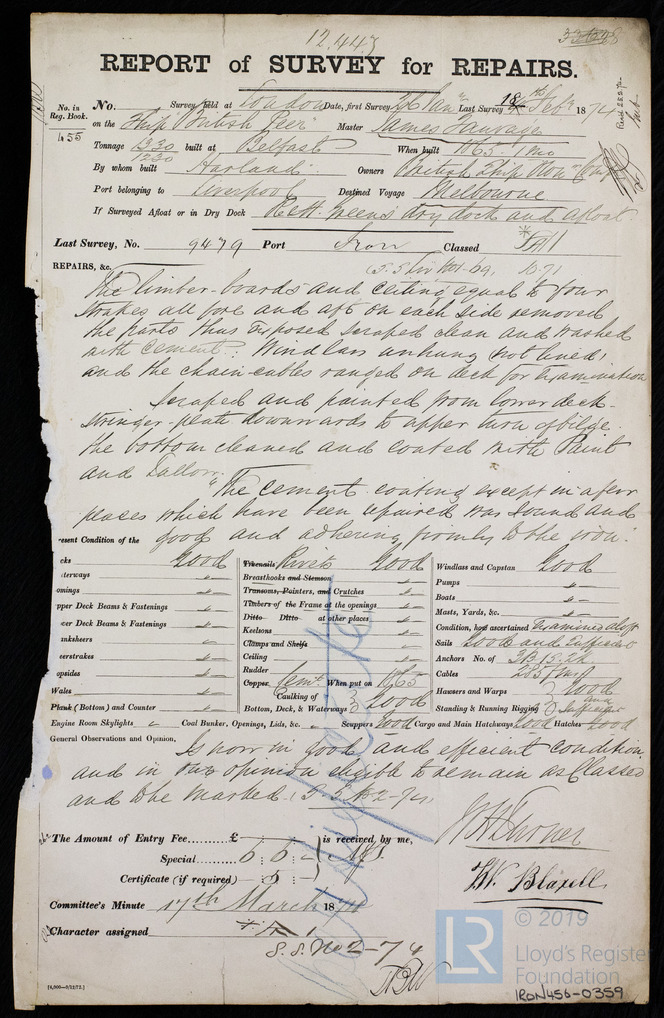 12.443
REPORT of SURVEY for REPAIRS.
No. in Reg. Book. 455
No. Survey held at London Date, first Survey 26 Jan Last Survey 18th Feby 1874
on the Ship "British Peer" Master James Sauvage
Tonnage 1230 built at Belfast When built 1865-1mo
By whom built Harland Owners British Ship
Port belonging to Liverpool Destined Voyage Melbourne
If Surveyed Afloat or in Dry Dock R & H Greens dry dock and afloat
Last Survey, No. 9479 Port Iron Classed
REPAIRS, &c.
The limber-boards and ceiling equal to four
strakes all fore and aft on each side removed
the parts thus exposed scraped clean and washed
with cement. Windlass unhung not lined,
and the chain-cables ranged on deck for examination
Scraped and painted from lower deck-
stringer-plate downwards to upper turn of bilge.
the bottom cleaned and coated with Paint
and tallow.
"The cement coating except in a few
places which have been repaired was sound and
good and adhering firmly to the iron.
resent Condition of the
cks Good
terways "
onings "
pper Deck Beams & Fastenings "
er Deck Beams & Fastenings "
nksheers "
eerstrakes "
opsides "
Wales "
Plank (Bottom) and Counter "
Treenails Rivets Good
Breasthooks and Stemson "
Transoms, Pointers, and Crutches "
Timbers of the Frame at the openings "
Ditto Ditto at other places "
Keelsons "
Clamps and Shelfs "
Ceiling "
Rudder "
Copper Cemt When put on 1865
Caulking of Bottom, Deck, & Waterways Good
Windlass and Capstan Good
Pumps "
Boats "
Masts, Yards, &c. "
Condition, how ascertained Examined aloft
Sails Good and Sufficient
Anchors No. of 3B. 1S. 2K
Cables 285 fms
Hawsers and Warps Good
Standing & Running Rigging and Sufficient
Engine Room Skylights " Coal Bunker, Openings, Lids, &c. " Scuppers Good Cargo and Main Hatchways Good Hatches Good
General Observations and Opinion,
Is now in good and efficient condition
and in our opinion eligible to remain as Classed
and to be marked
The Amount of Entry Fee £ is received by me,
Special 6 : 6 : -
Certificate (if required) - : 5 : -
Committee's Minute 17th March 1874
Character assigned
S.S. No 2-74
T.W. Blaxell
[4,000-9/12/72.]
LR © 2019
Lloyd's Register
Foundation
IRON456-0359